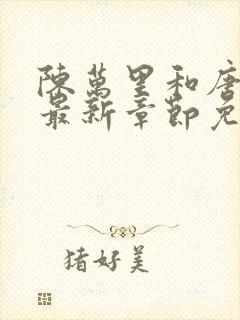 陳萬里和唐
最新章節免
猪好美